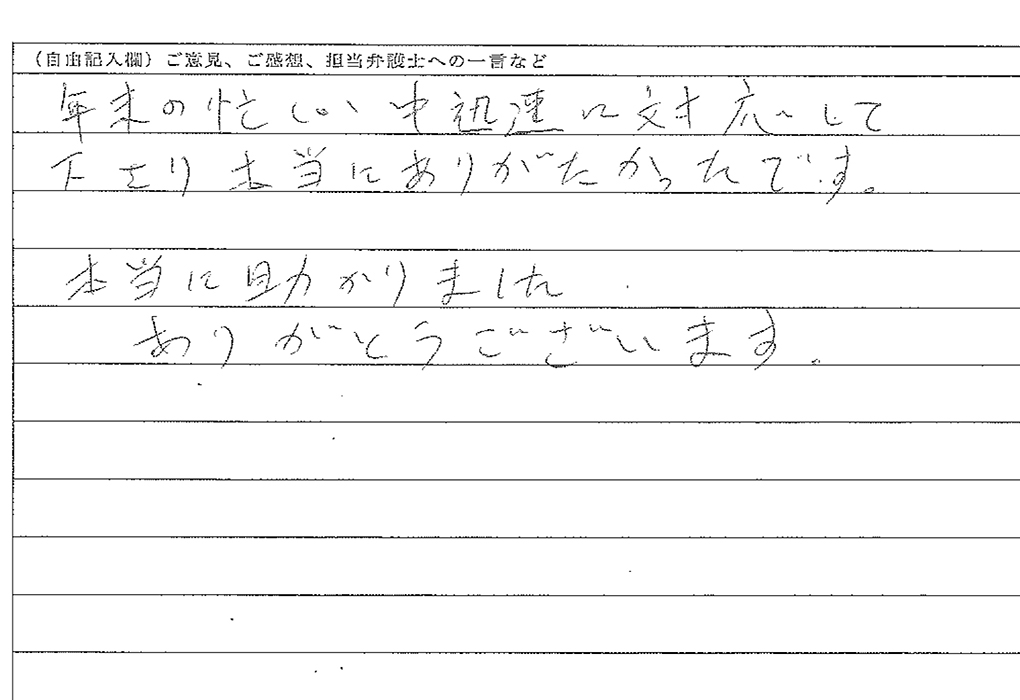 （自由記入欄）ご意見、ご感想、担当弁護士への一言など
年末の忙しい中迅速に対応して
下さり本当にありがたかったです。
本当に助かりました
ありがとうございます。